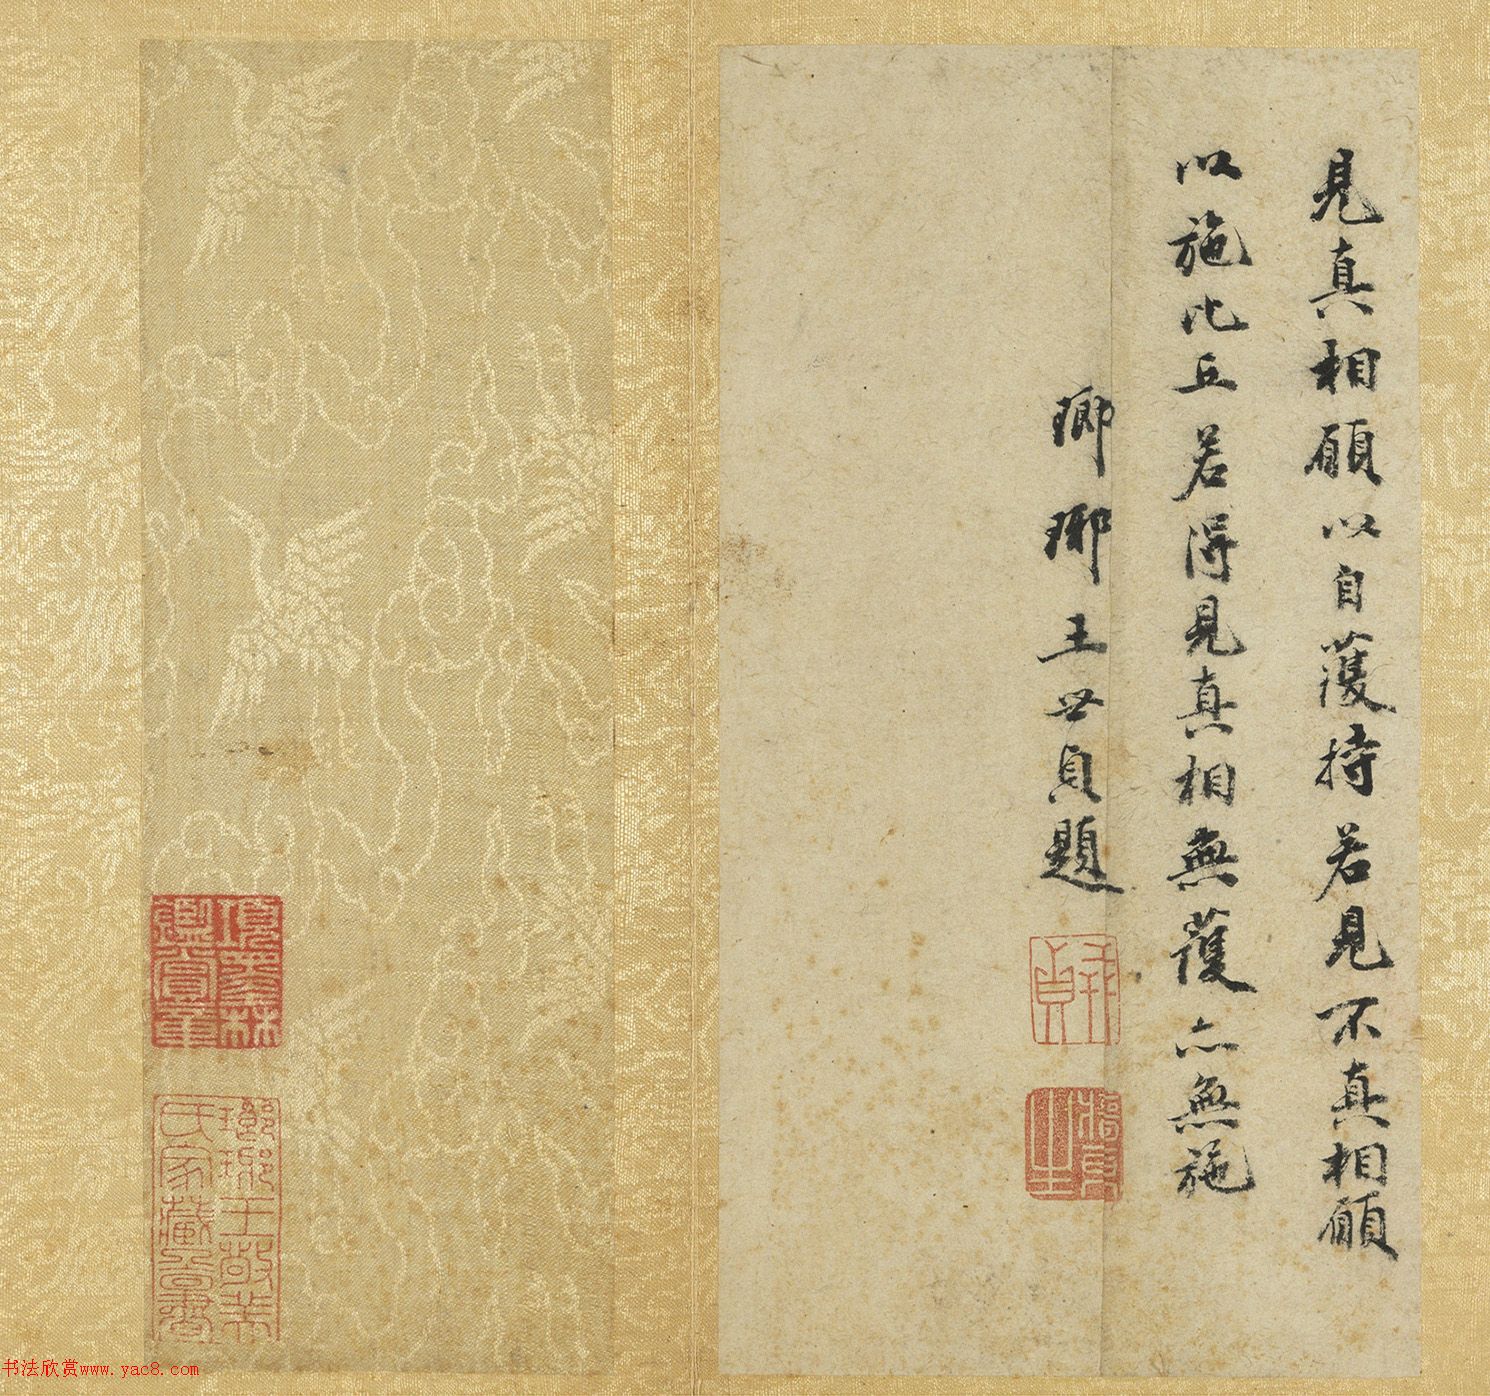 見真相願以自護持若見不真相願
以施比丘若得見真相無護亦無施
瑯琊王世貞題
貞
項子
鑑賞章
瑯琊王敬美
氏家藏圖書
书法欣赏www.yac8.com